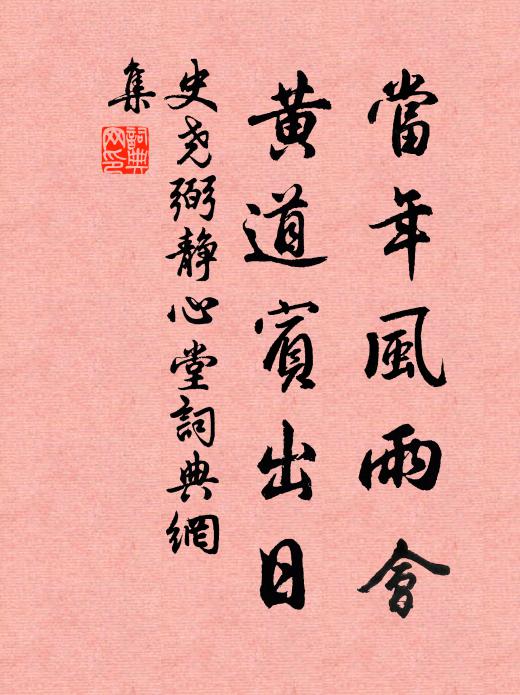 當年風雨會
黃道賓出日
史尧弼靜心堂詞典網
集
詞典網印